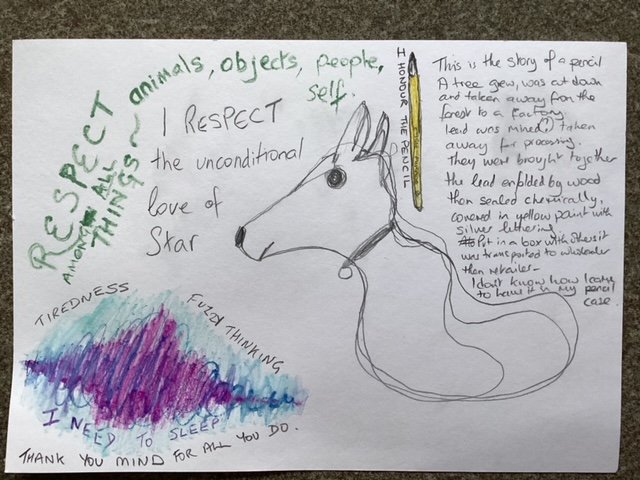 RESPECT
AMONGST ALL
THINGS ~ animals, objects, people,
self.
I RESPECT
the unconditional
love of
Star
I HONOUR THE PENCIL
This is the story of a pencil
A tree grew, was cut down
and taken away from the
forest to a factory
lead was mined, taken
away for processing.
They were brought together
the lead enfolded by wood
then sealed chemically,
covered in yellow paint with
silver lettering.
Put in a box with others it
was transported to wholesaler
then retailer –
I don't know how I came
to have it in my pencil
case.
TIREDNESS
FUZZY THINKING
I NEED TO SLEEP
THANK YOU MIND FOR ALL YOU DO.